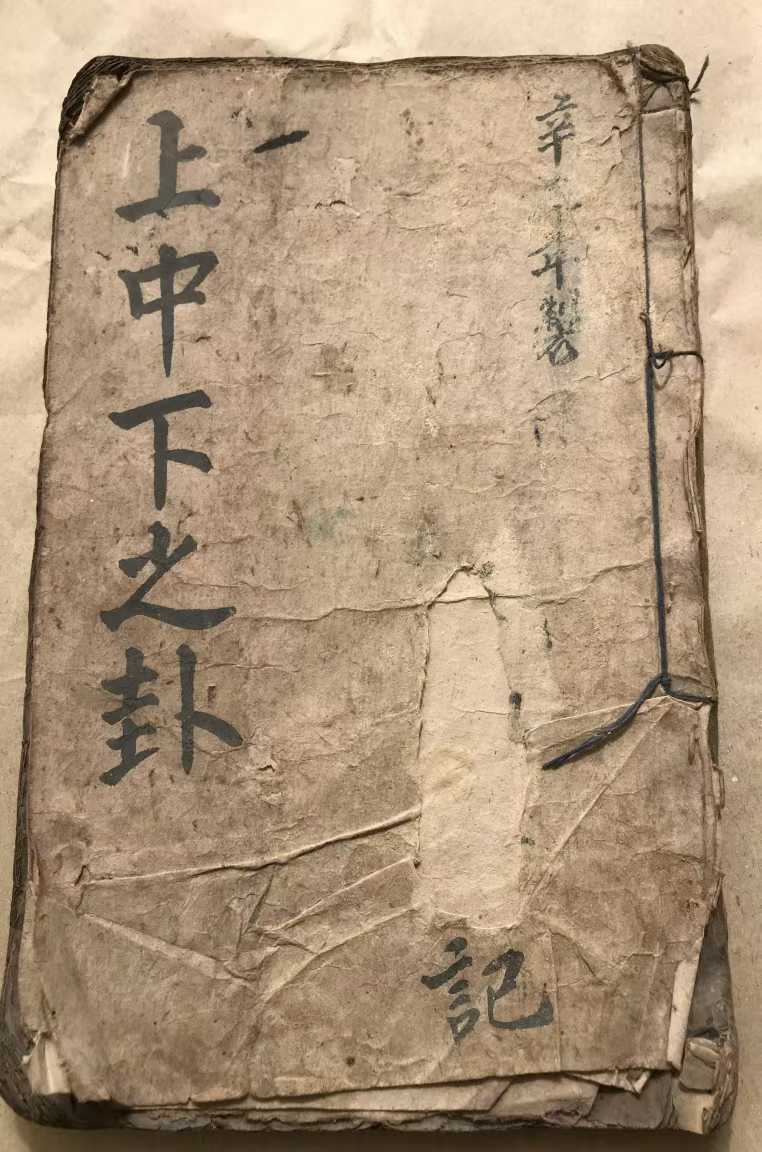 辛 年製
記
一
上中下之卦